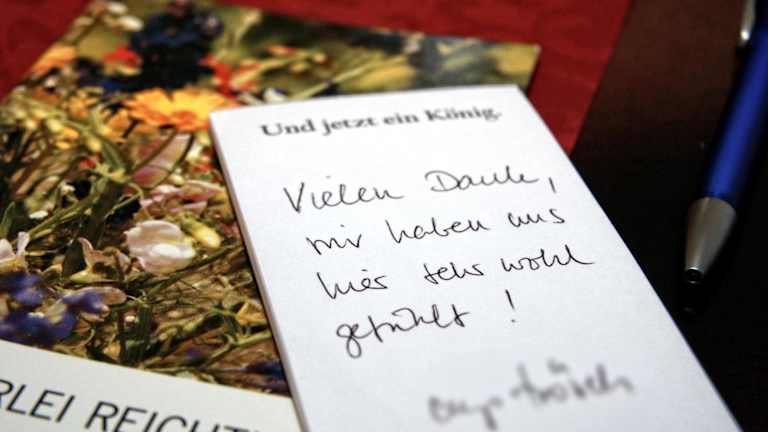 Und jetzt ein König.
Vielen Dank,
wir haben uns
hier sehr wohl
gefühlt!
RLEI REICHT